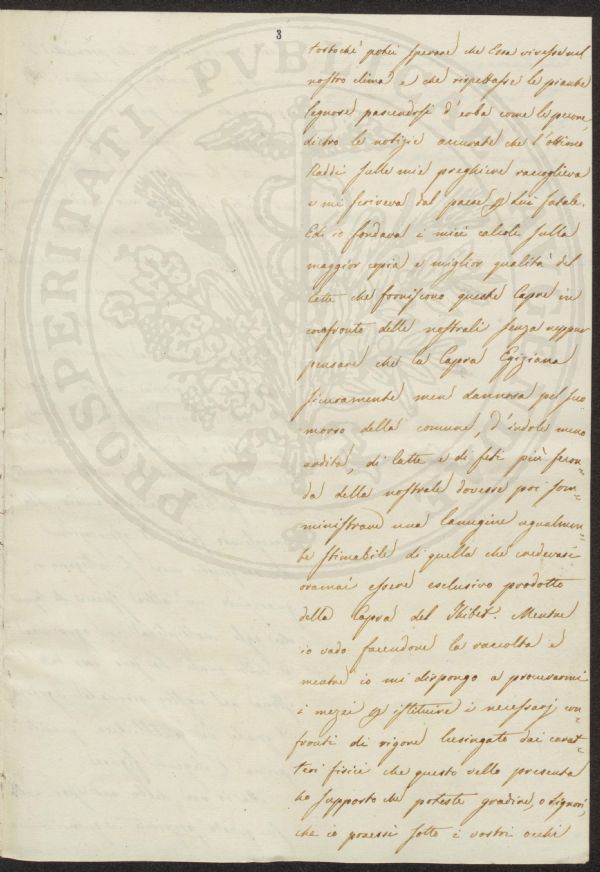 3
tostoché potei sperare che Essa vivesse nel
nostro clima e che rispettasse le piante
legnose pascendosi d'erba come le pecore,
dietro le notizie accurate che l'ottimo
Raddi sulle mie preghiere raccoglieva
e mi scriveva dal paese p lui fatale.
Ed io fondava i miei calcoli sulla
maggior copia e miglior qualità del
latte che forniscono queste Capre in
confronto delle nostrali senza neppur
pensare che la Capra Egiziana
sicuramente men dannosa pel suo
morso della comune, d'indole meno
ardita, di latte e di feti più fecon=
da della nostrale dovesse poi som=
ministrare una lanugine ugualmen=
te stimabile di quella che credevasi
oramai essere esclusivo prodotto
della Capra del Thibet. Mentre
io vado facendone la raccolta e
mentre io mi dispongo a procurarmi
i mezzi p istituire i necessarj con=
fronti di rigore lusingato dai carat=
teri fisici che questo vello presenta
ho supposto che poteste gradire, o Signori,
che io ponessi sotto i vostri occhi
PROSPERITATI PVBLICAE